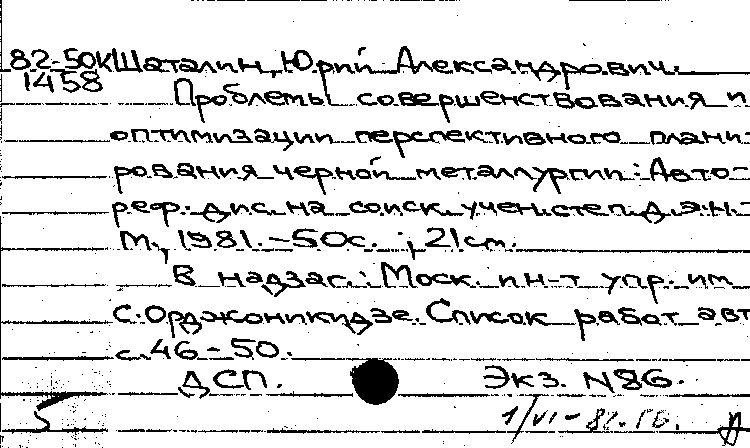 82-50К Шаталин, Юрий Александрович.
1458
Проблемы совершенствования и
оптимизации перспективного плани-
рования черной металлургии: Авто-
реф. дис. на соиск. учен. степ. д.э.н.-
М., 1981.-50с. ; 21см.
В надзаг.: Моск. ин-т упр. им
С. Орджоникидзе. Список работ авт
с. 46-50.
ДСП. Экз. №86.
5 1/VI-82.